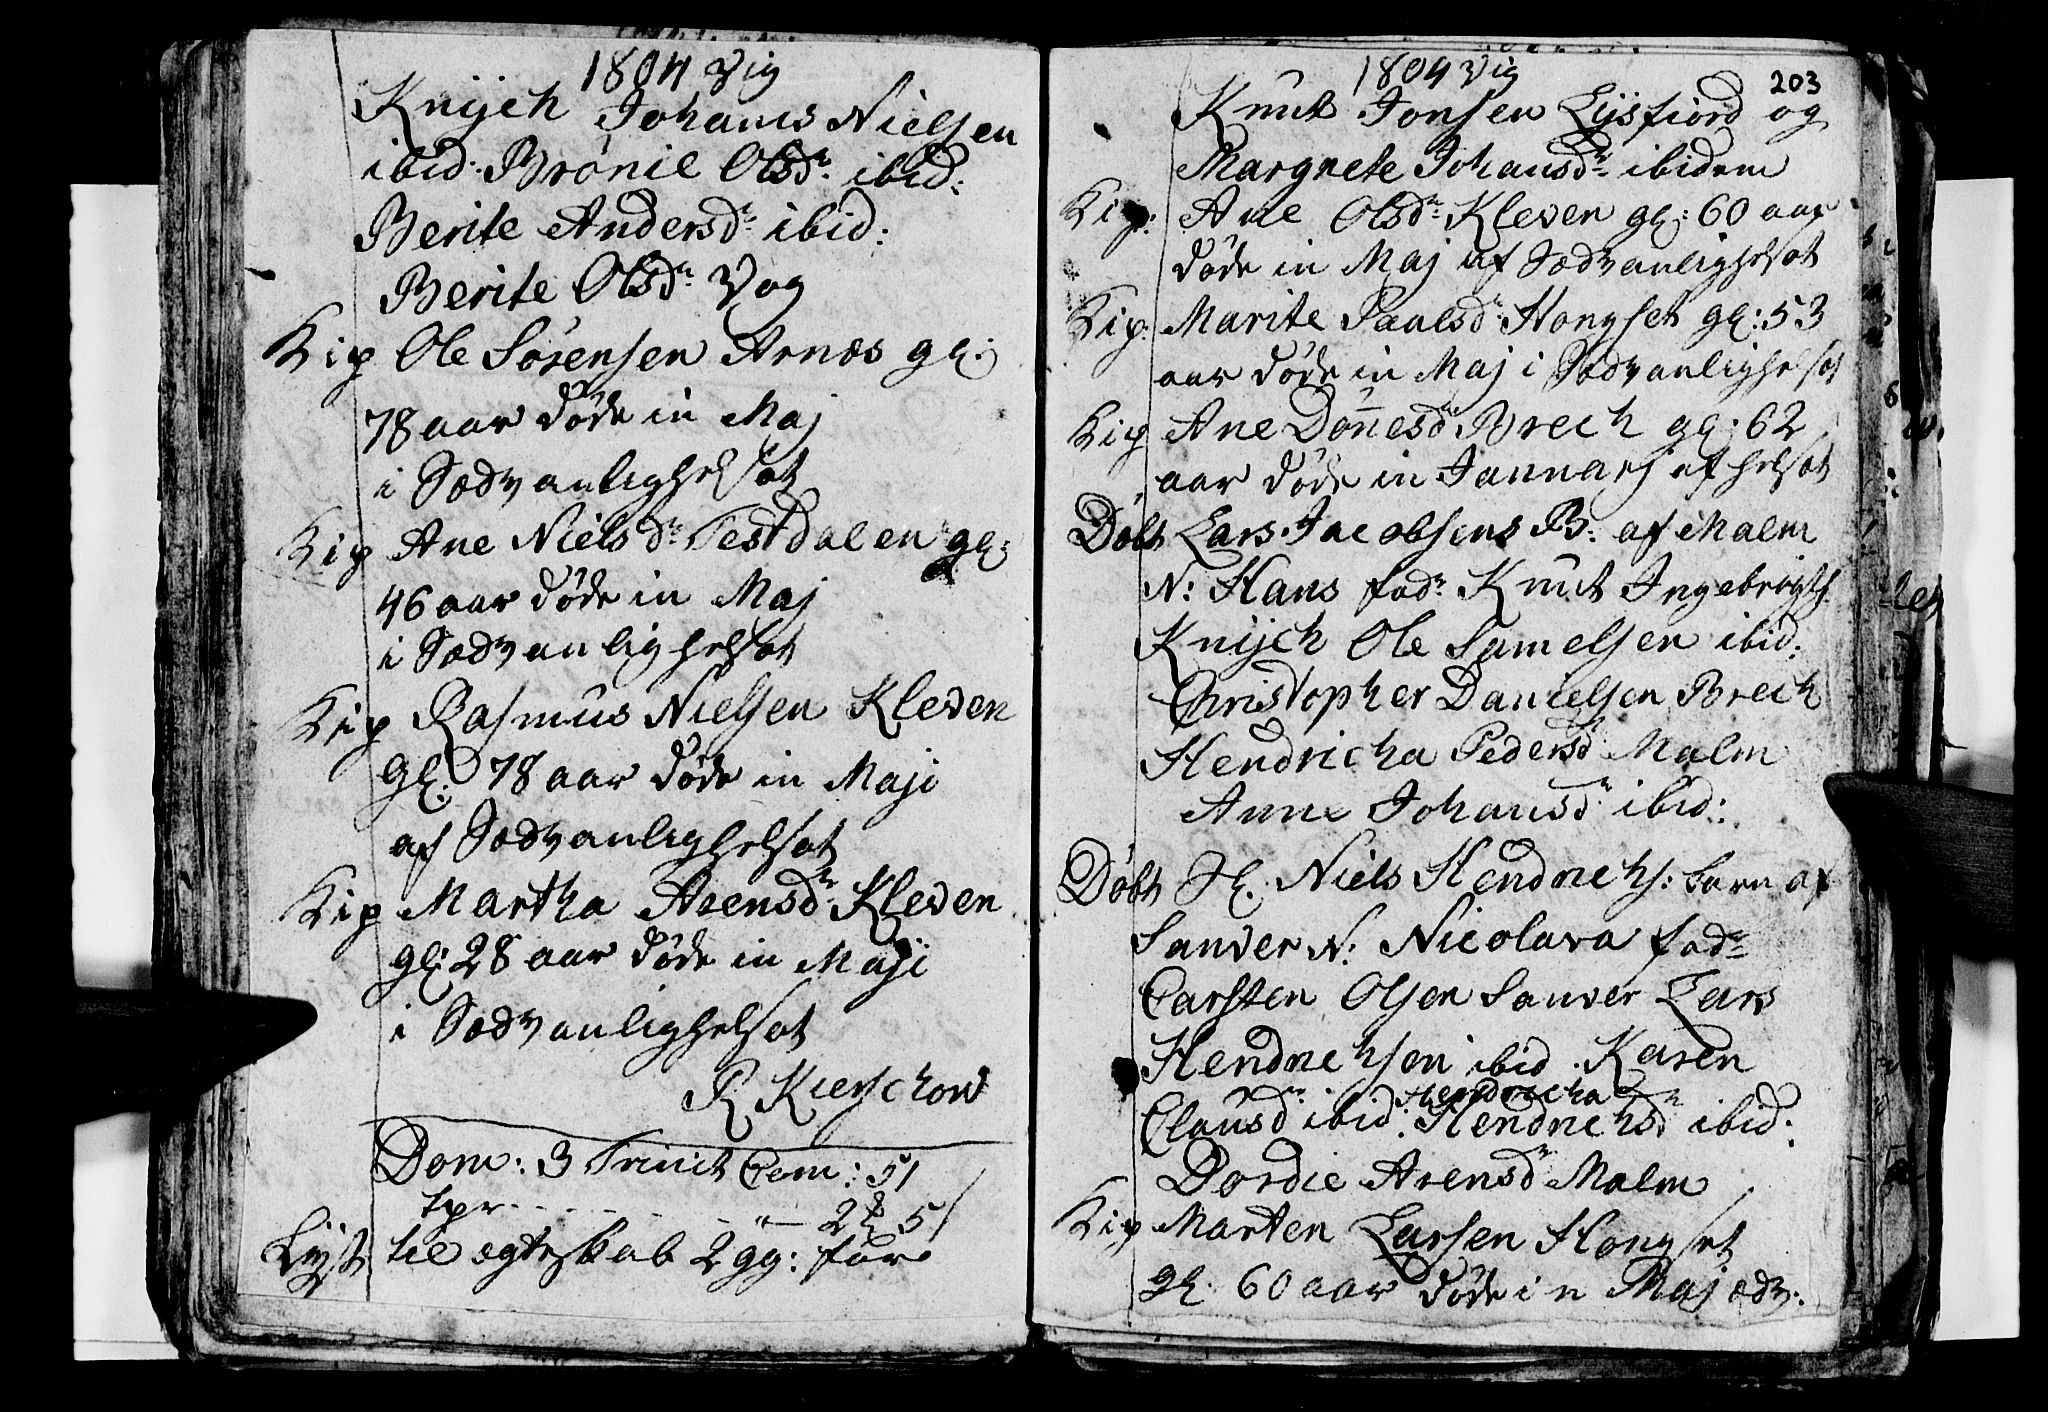 1804 Vig
Knÿch Johanes Nielsen
ibid. Brønil Olsdr: ibid:
Berite Andersdr: ibid:
Berite Olsdr Vog
Ole Sørensen Arnæs gl:
78 aar døde in Maj
i Sædvanlighelsot
Ane Nielsdr Testdalen gl:
46 aar døde in Maj
i Sædvanlighelsot
Rasmus Nielsen Kleven
gl: 78 aar døde in Maji
af Sædvanlighelsot
Martha Arensdr Kleven
gl: 28 aar døde in Maji
i Sædvanlighelsot
R Kierschow
Dom: 3 Trinit Com: 51
tpr 2 51
Lyst til ægteskab 2 gg: for
1804 Vig 203
Knut Jonsen Lysfiord og
Margrete Johansdr ibidem
Ane Olsdr: Kleven gl: 60 aar
døde in Maj af Sædvanlighelsot
Marite Paulsd: Hongset gl: 53
aar døde in Maj i Sædvanlighelsot
Ane Dønnesd Brech gl: 62
aar døde in Januarj af helsot
Døbt Lars Jacobsens B: af Malm
N: Hans fadr Knut Ingebrigts.
Knÿch Ole Samelsen ibid:
Christopher Danielsen Brech
Hendricha Pedersd Malm
Anne Johansdr ibid:
Døbt Niels Hendrichs: barn af
Sanver N: Nicolava fadr
Carsten Olsen Sanver Lars
Hendrichsen ibid. Karen
Clausdr ibid: Hendricha Hendrichsdr ibid:
Dordie Arensdr Malm
Marten Larsen Hongset
gl. 60 aar døde in Maj ædv: